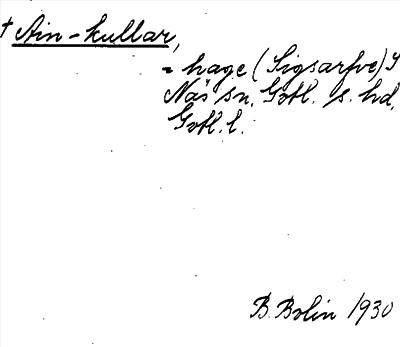 † Ain-kullar,
= hage (Sigsarfve) S
Näs sn. Gotl. s. hd.
Gotl. l.
B. Bolin 1930